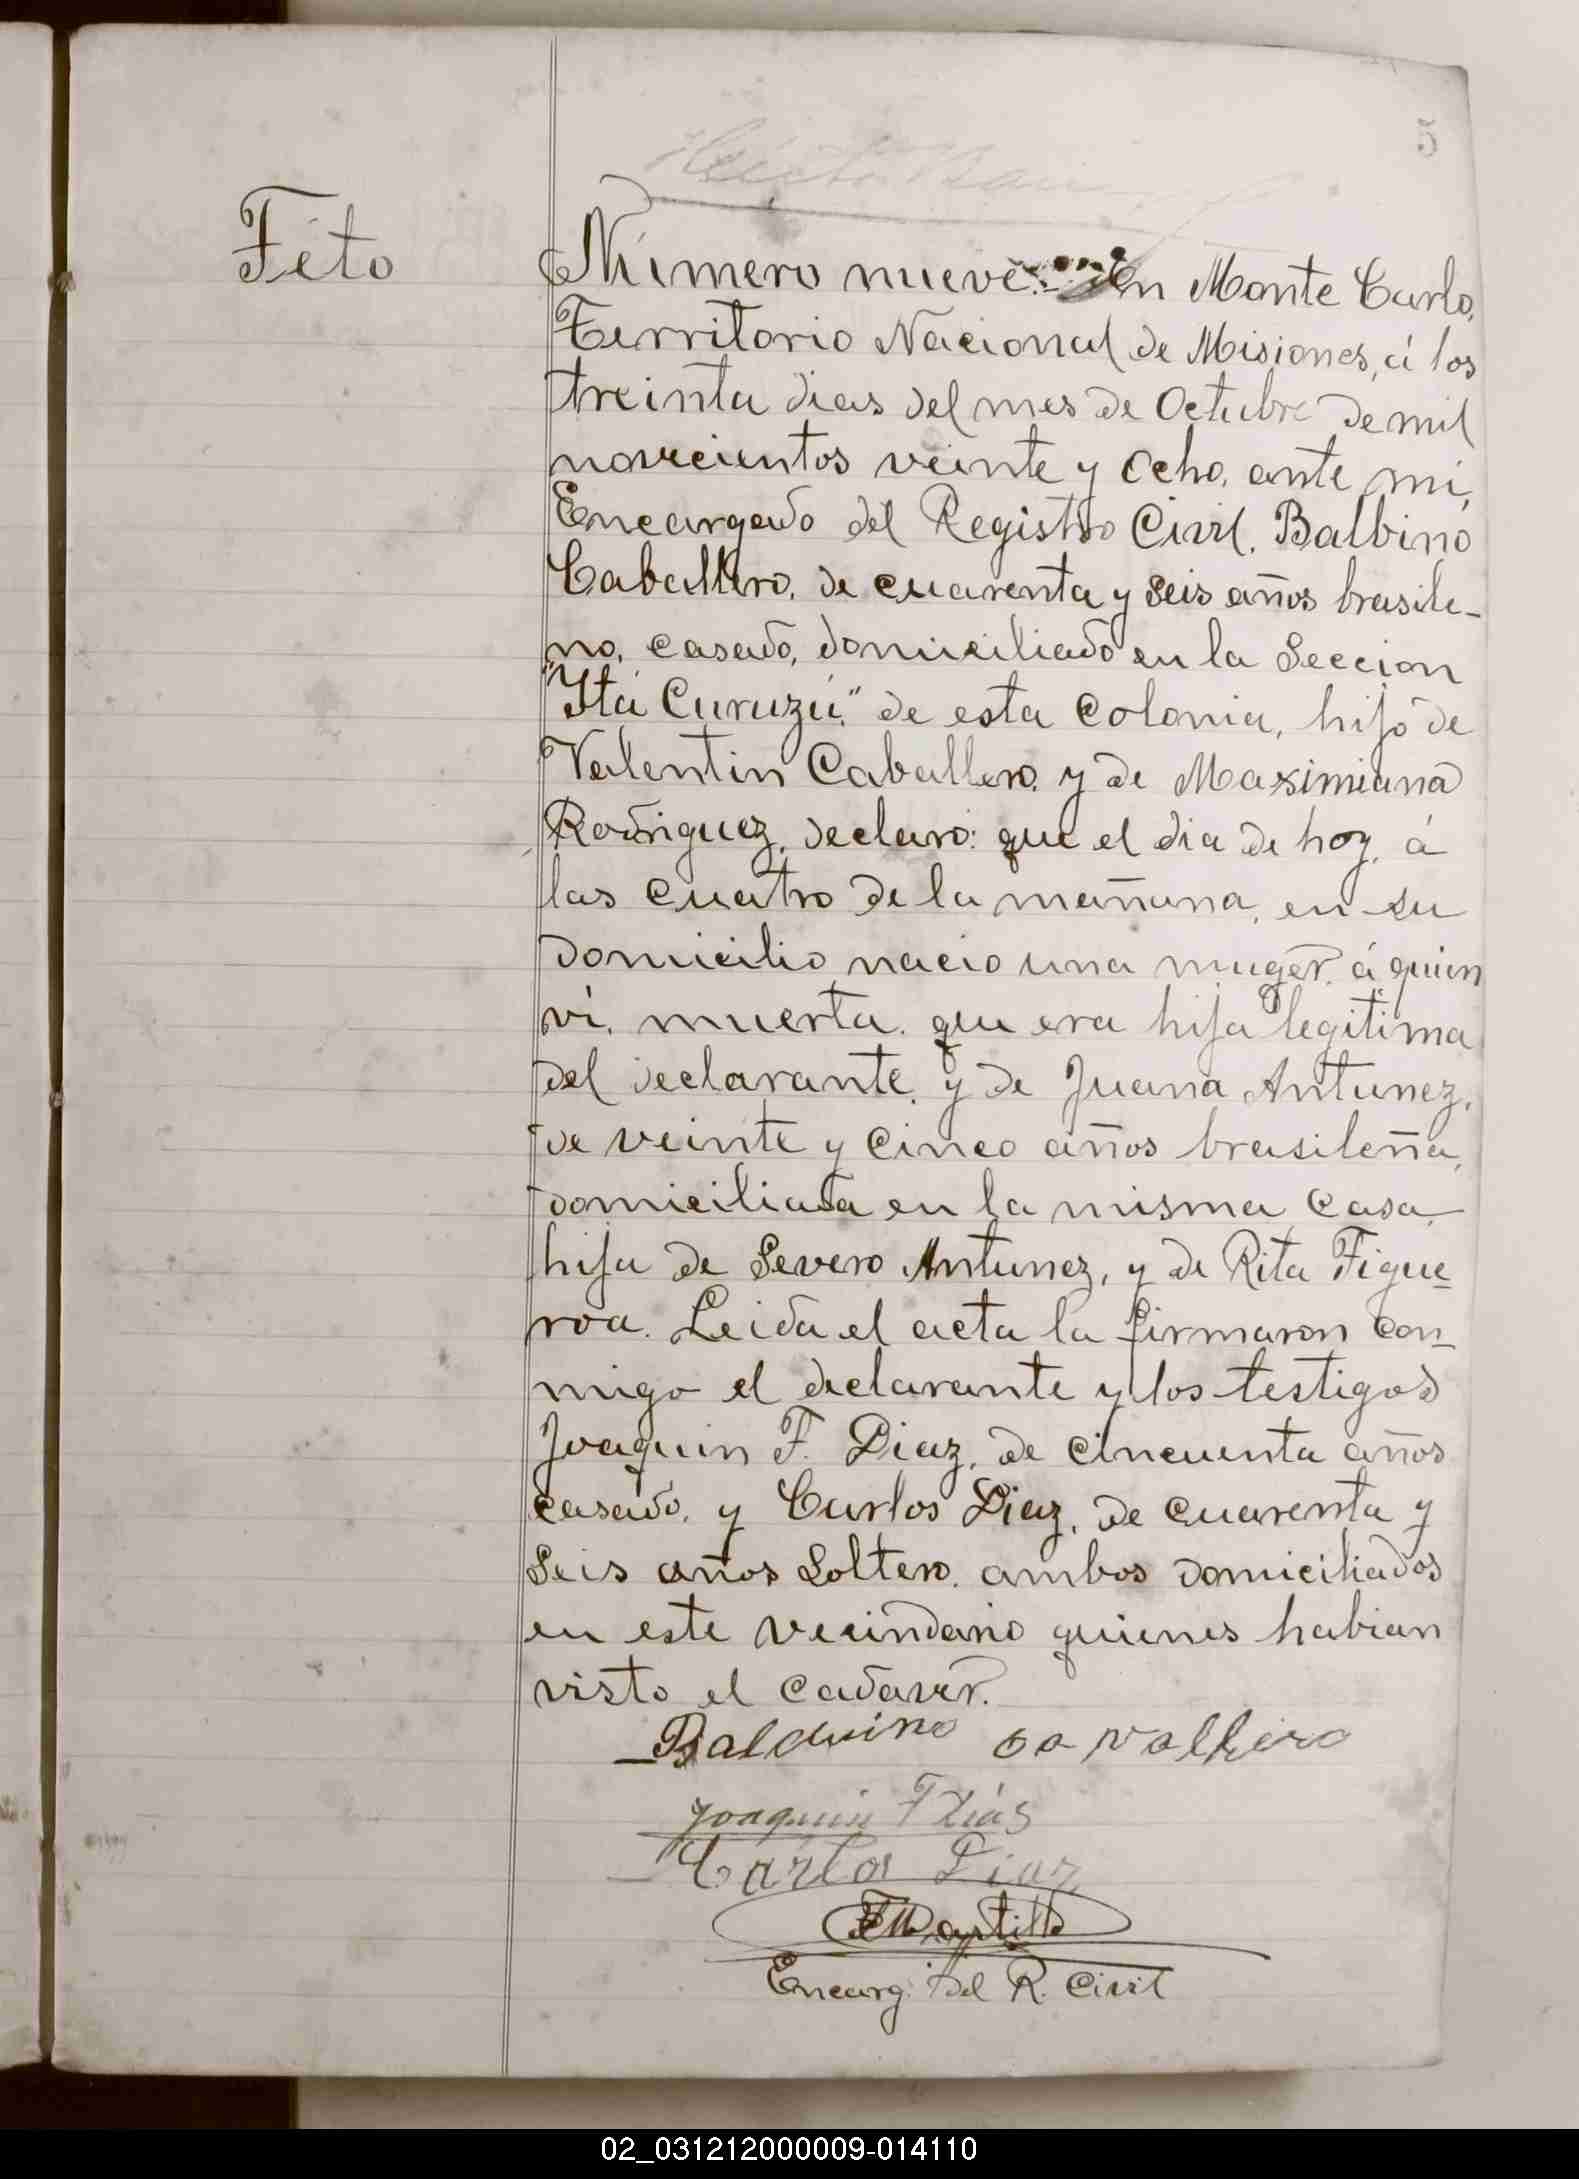 5
Feto
Número nueve: En Monte Carlo,
Territorio Nacional de Misiones, á los
treinta dias del mes de Octubre de mil
novecientos veinte y ocho, ante mi,
Encargado del Registro Civil, Balbino
Caballero, de cuarenta y seis años brasile-
no, casado, domiciliado en la Seccion
"Itá Curuzú," de esta Colonia, hijo de
Valentin Caballero, y de Maximiana
Rodriguez, declaro: que el dia de hoy, á
las cuatro de la mañana, en su
domicilio nacio una muger, á quien
vi, muerta, que era hija legitima
del declarante, y de Juana Antunez,
de veinte y cinco años brasileña,
domiciliada en la misma casa,
hija de Severo Antunez, y de Rita Figue-
roa. Leida el acta la firmaron con-
migo el declarante y los testigos
Joaquin F. Diaz, de cincuenta años
casado, y Carlos Diaz, de cuarenta y
seis años soltero, ambos domiciliados
en este vecindario quienes habian
visto el cadaver.
Balduino Cavalheiro
Joaquin F Diás
Carlos Diaz
Encarg. del R. Civil
02_031212000009-014110